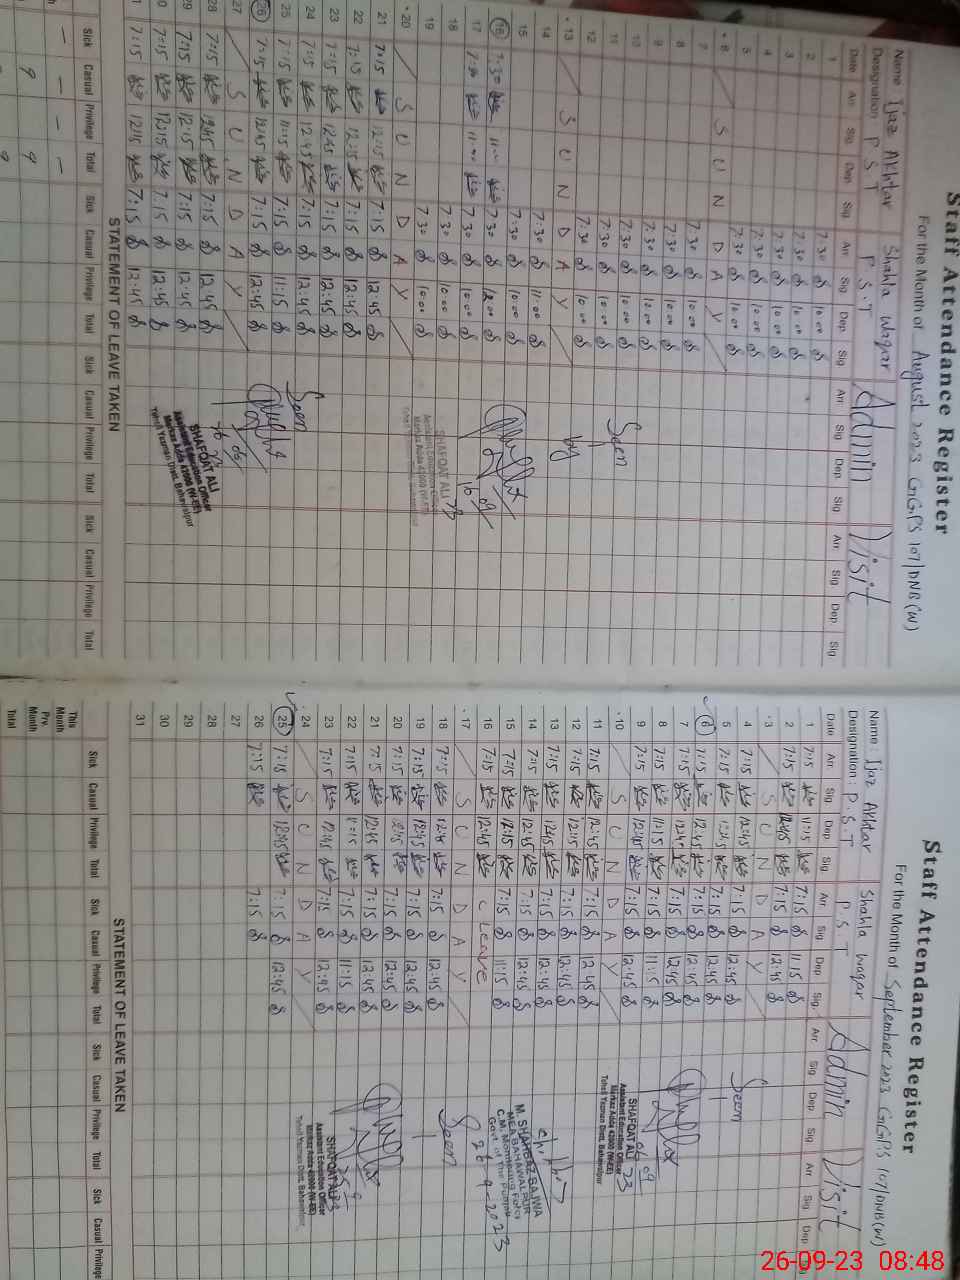 Staff Attendance Register
For the Month of August 2023 GGPS 107/DNB(W)
Name : Ijaz Akhtar Shahla Waqar Admin Visit
Designation P S T P.S.T
Date Arr Sig Dep Sig Arr Sig Dep Sig Arr Sig Dep Sig Arr Sig Dep Sig
1 7:30 10:00
2 7:30 10:00
3 7:30 10:00
4 7:30 10:00
5 7:30 10:00
6 S U N D A Y
7 7:30 10:00
8 7:30 10:00
9 7:30 10:00
10 7:30 10:00
11 7:30 10:00
12 7:30 10:00
13 S U N D A Y
14 7:30 11:00
15 7:30 10:00
16 7:30 11:00 7:30 12:00
17 7:30 11:00 7:30 10:00
18 7:30 10:00
19 7:30 10:00
20 S U N D A Y
21 7:15 12:15 7:15 12:45
22 7:15 12:15 7:15 12:45
23 7:15 12:45 7:15 12:45
24 7:15 12:45 7:15 12:45
25 7:15 11:15 7:15 11:15
26 7:15 12:45 7:15 12:45
27 S U N D A Y
28 7:15 12:45 7:15 12:45
29 7:15 12:15 7:15 12:45
30 7:15 12:15 7:15 12:45
7:15 12:15 7:15 12:45
Seen
by
SHAFQAT ALI
Assistant Education Officer
Markaz Adda 42000 (W-EE)
Tehsil Yazman Distt. Bahawalpur
Seen
SHAFQAT ALI
Assistant Education Officer
Markaz Adda 42000 (W-EE)
Tehsil Yazman Distt. Bahawalpur
STATEMENT OF LEAVE TAKEN
Sick Casual Privilege Total Sick Casual Privilege Total Sick Casual Privilege Total Sick Casual Privilege Total
Staff Attendance Register
For the Month of September 2023 GGPS 107/DNB(W)
Name : Ijaz Akhtar Shahla Waqar Admin Visit
Designation : P.S.T P.S.T
Date Arr Sig Dep Sig Arr Sig Dep Sig. Arr Sig Dep Sig Arr Sig Dep
1 7:15 11:15 7:15 11:15
2 7:15 12:45 7:15 12:45
3 S U N D A Y
4 7:15 12:45 7:15 12:45
5 7:15 7:15 12:45
6 7:15 12:45 7:15 12:45
7 7:15 12:45 7:15 12:45
8 7:15 11:15 7:15 11:15
9 7:15 12:45 7:15 12:45
10 S U N D A Y
11 7:15 12:45 7:15 12:45
12 7:15 12:15 7:15 12:45
13 7:15 12:45 7:15 12:45
14 7:15 12:45 7:15 12:45
15 7:15 12:15 7:15 11:15
16 7:15 12:45 C Leave
17 S U N D A Y
18 7:15 12:45 7:15 12:45
19 7:15 12:45 7:15 12:45
20 7:15 12:45 7:15 12:45
21 7:15 12:45 7:15 12:45
22 7:15 11:15 7:15 11:15
23 7:15 12:45 7:15 12:45
24 S U N D A Y
25 7:15 12:45 7:15 12:45
26 7:15 7:15
27
28
29
30
31
Seen
06 09 23
SHAFQAT ALI
Assistant Education Officer
Markaz Adda 42000 (W-EE)
Tehsil Yazman Distt. Bahawalpur
M. SHAHBAZ BAJWA
MEA BAHAWALPUR
C.M. Monitoring Force
Govt. of the Punjab
26-9-2023
Seen
SHAFQAT ALI
Assistant Education Officer
Markaz Adda 42000 (W-EE)
Tehsil Yazman Distt. Bahawalpur
STATEMENT OF LEAVE TAKEN
Sick Casual Privilege Total Sick Casual Privilege Total Sick Casual Privilege Total Sick Casual Privilege
This Month
Prv. Month
Total
26-09-23 08:48